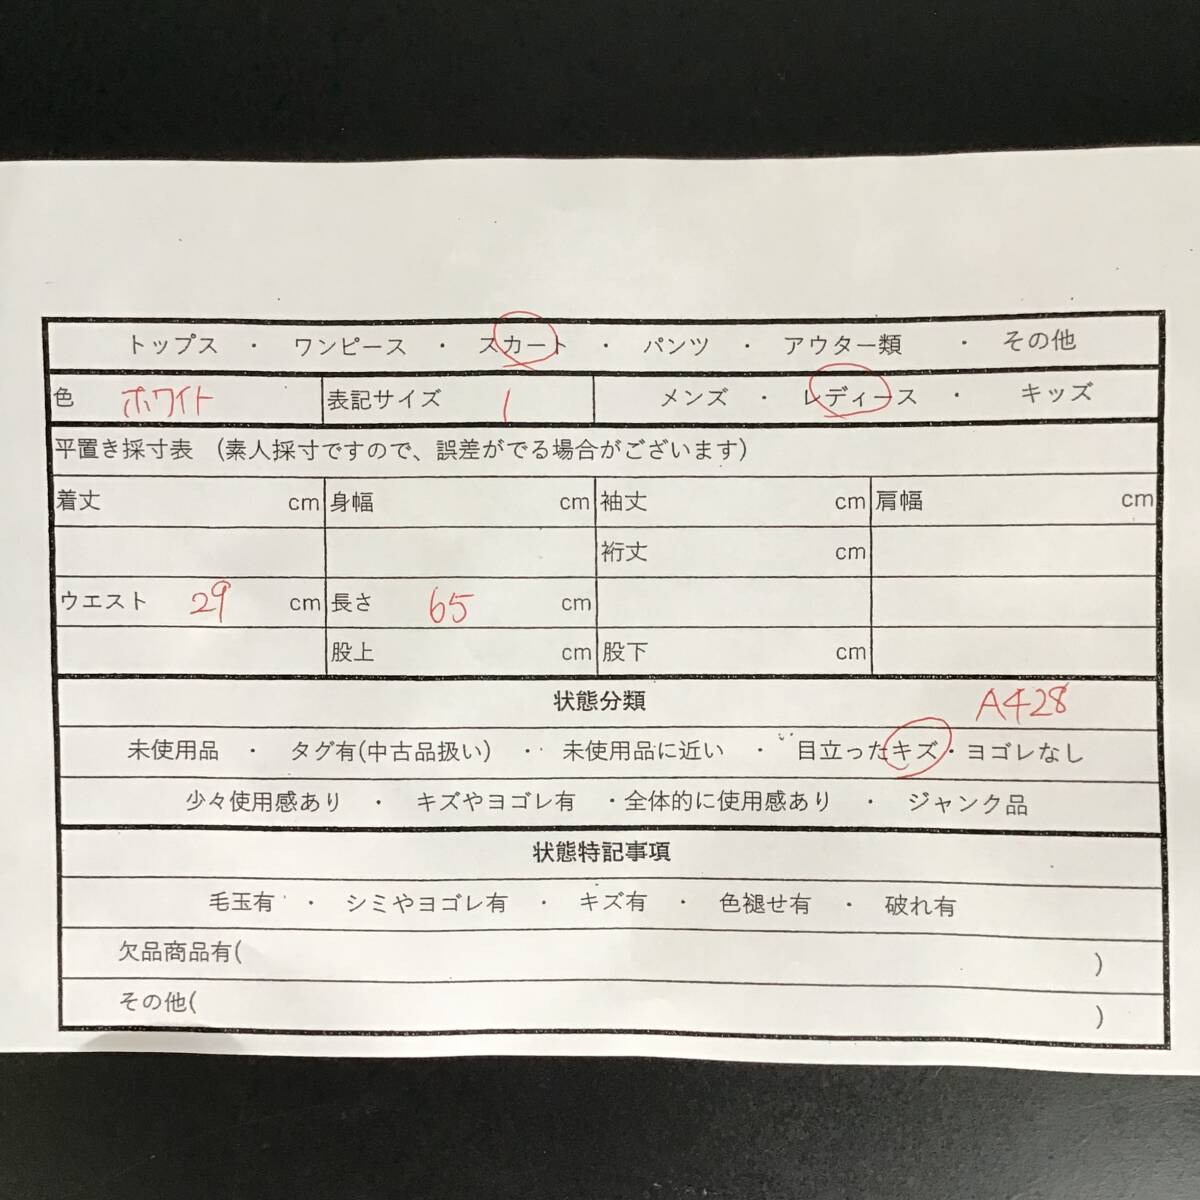 トップス ・ ワンピース ・ スカート ・ パンツ ・ アウター類 ・ その他
色 ホワイト 表記サイズ 1 メンズ ・ レディース ・ キッズ
平置き採寸表 (素人採寸ですので、誤差がでる場合がございます)
着丈 cm 身幅 cm 袖丈 cm 肩幅 cm
裄丈 cm
ウエスト 29 cm 長さ 65 cm
股上 cm 股下 cm
状態分類 A428
未使用品 ・ タグ有(中古品扱い) ・ 未使用品に近い ・ 目立ったキズ・ヨゴレなし
少々使用感あり ・ キズやヨゴレ有 ・全体的に使用感あり ・ ジャンク品
状態特記事項
毛玉有 ・ シミやヨゴレ有 ・ キズ有 ・ 色褪せ有 ・ 破れ有
欠品商品有( )
その他( )